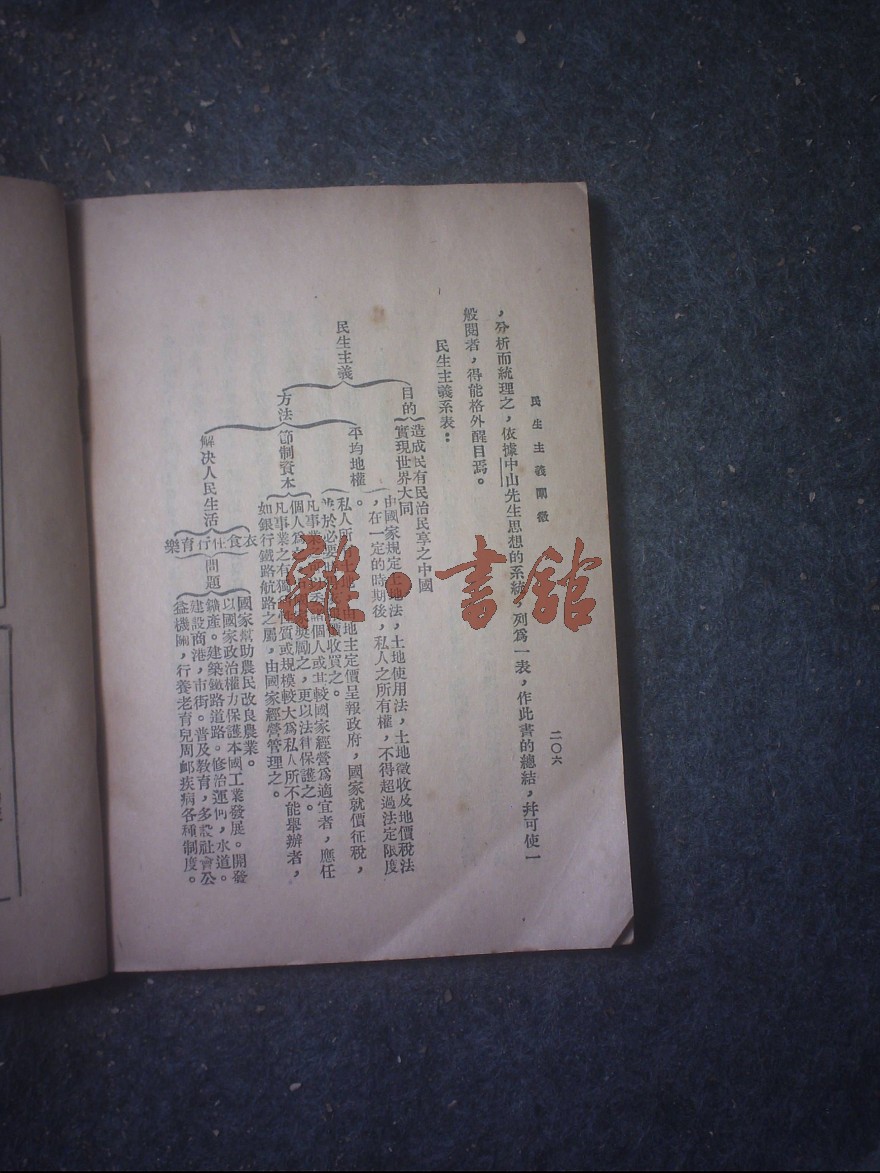 民生主義闡微
二〇六
，分析而統理之，依據中山先生思想的系統，列爲一表，作此書的總結，幷可使一
般閱者，得能格外醒目焉。
民生主義系表：
民生主義
目的
造成民有民治民享之中國
實現世界大同
方法
平均地權
由國家規定土地法，土地使用法，土地徵收及地價稅法
，在一定的時期後，私人之所有權，不得超過法定限度
。
私人所 土地 由地主定價呈報政府，國家就價征稅，
並於必要 價收買之。
節制資本
凡事業 委 個人或其較國家經營爲適宜者，應任
個人爲 獎勵之，更以法律保護之。
凡事業之有獨 性質或規模較大爲私人所不能舉辦者，
如銀行鐵路航路之屬，由國家經營管理之。
解決人民生活
衣食住行育樂
問題
國家幫助農民改良農業。
以國家政治權力保護本國工業發展。開發
鑛產。建築鐵路道路。修治運河，水道。
建設商港，市街。普及敎育，多設社會公
益機關，行養老育兒周卹疾病各種制度。
雜·書館